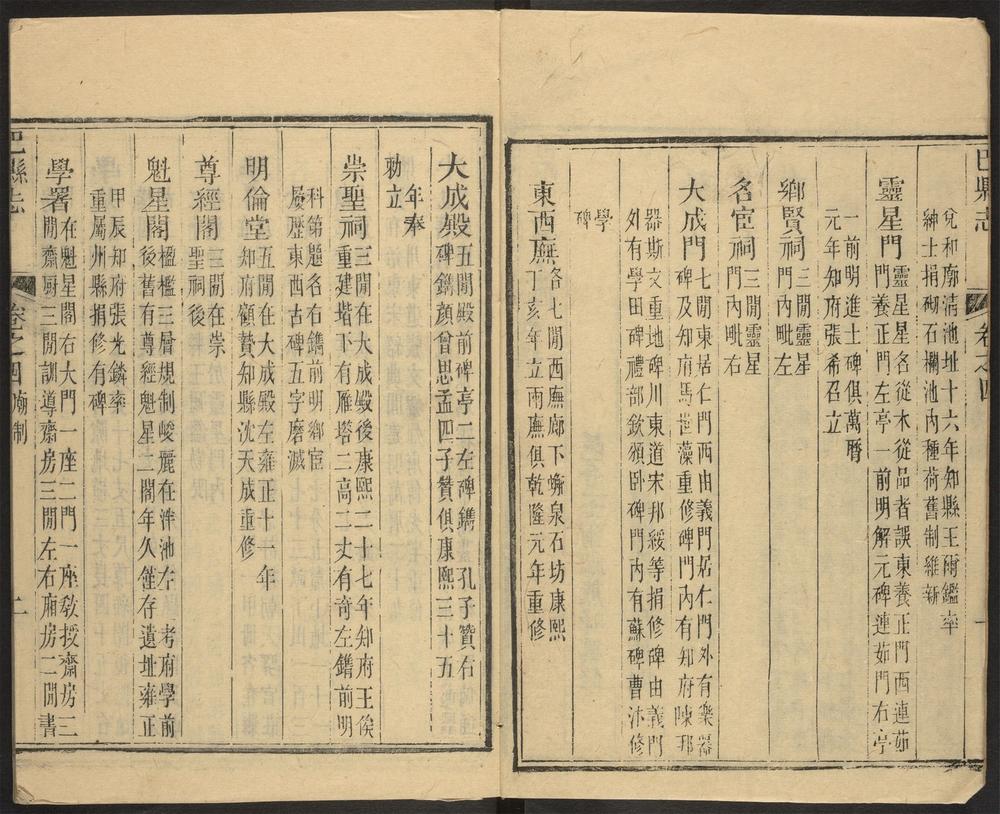 巴縣志 卷之四 一
兌和廓清池址十六年知縣王爾鑑率
紳士捐砌石欄池內種荷舊制維新
靈星門 靈星星名從木從品者誤東養正門西連茹
門養正門左亭一前明解元碑連茹門右亭
一前明進士碑俱萬曆
元年知府張希召立
鄉賢祠 三間靈星
門內毗左
名宦祠 三間靈星
門內毗右
大成門 七間東居仁門西由義門居仁門外有樂器
碑及知府馬世藻重修碑門內有知府陳邦
器斯文重地碑川東道宋邦綏等捐修碑由義門
外有學田碑禮部欽頒卧碑門內有蘇碑曹沐修
學
碑
東西廡 各七間西廡廊下泉石坊康熙
丁亥年立兩廡俱乾隆元年重修
大成殿 五間殿前碑亭二左碑鐫孔子贊右
碑鐫顔曾思孟四子贊俱康熙三十五
年奉
勅立
崇聖祠 三間在大成殿後康熙二十七年知府王俟
重建階下有雁塔二高二丈有奇左鐫前明
科第題名右鐫前明鄉宦
履歷東西古碑五字磨滅
明倫堂 五間在大成殿左雍正十一年
知府顧贄知縣沈天成重修
尊經閣 三間在崇
聖祠後
魁星閣 楹檻三層規制峻麗在泮池左考府學前
後舊有尊經魁星二閣年久僅存遺址雍正
甲辰知府張光鏻率
重屬州縣捐修有碑
學署 在魁星閣右大門一座二門一座教授齋房三
間齋厨三間訓導齋房三間左右廂房二間書
巴縣志 卷之四 廟制 二